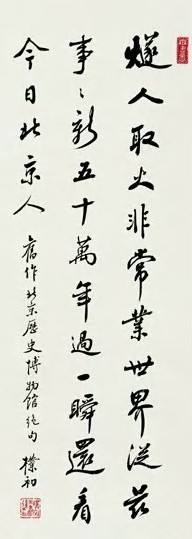 燧人取火非常業世界從茲
事〻新五十萬年過一瞬還看
今日北京人
舊作北京歷史博物館絶句 樸初